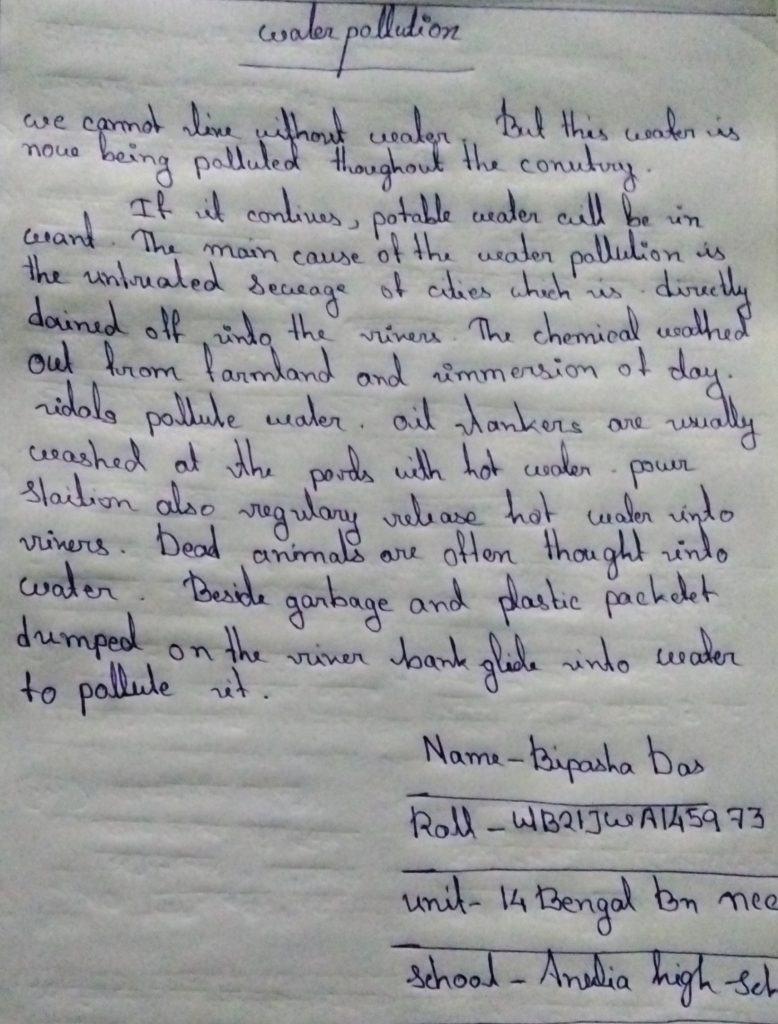 water pollution
we cannot live without water. But this water is
nowe being polluted thoughout the conutry.
If it contiues, potable water will be in
want. The main cause of the water pollution is
the untreated seweage of cities which is directly
dained off into the rivers. The chemical wathed
out from farmland and immersion of day.
idols pollute water. oil tankers are usually
washed at the pords with hot water. power
staition also regulary release hot water into
rivers. Dead animals are often thought into
water. Beside garbage and plastic packdet
dumped on the river bank glide into water
to pollute it.
Name - Bipasha Das
Roll - WB21JWA145973
unit - 14 Bengal Bn ncc
school - Anulia high sch